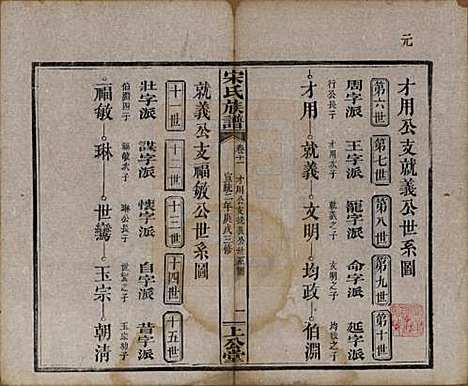 元
才用公支就義公世系圖
第六世 第七世 第八世 第九世 第十世
周字派 王字派 龍字派 命字派 延字派
行公長子 才用次子 就義之子 文明之子 均政次子
才用 就義 文明 均政 伯淵
宋氏族譜
卷十一
才用公支就義公世系圖
宣統二年庚戌三修
一
上公堂
就義公支福敏公世系圖
十一世 十二世 十三世 十四世 十五世
壯字派 謀字派 懷字派 自字派 昔字派
伯淵四子 福敏次子 琳公長子 世鸞之子 玉宗次子
福敏 琳 世鸞 玉宗 朝清